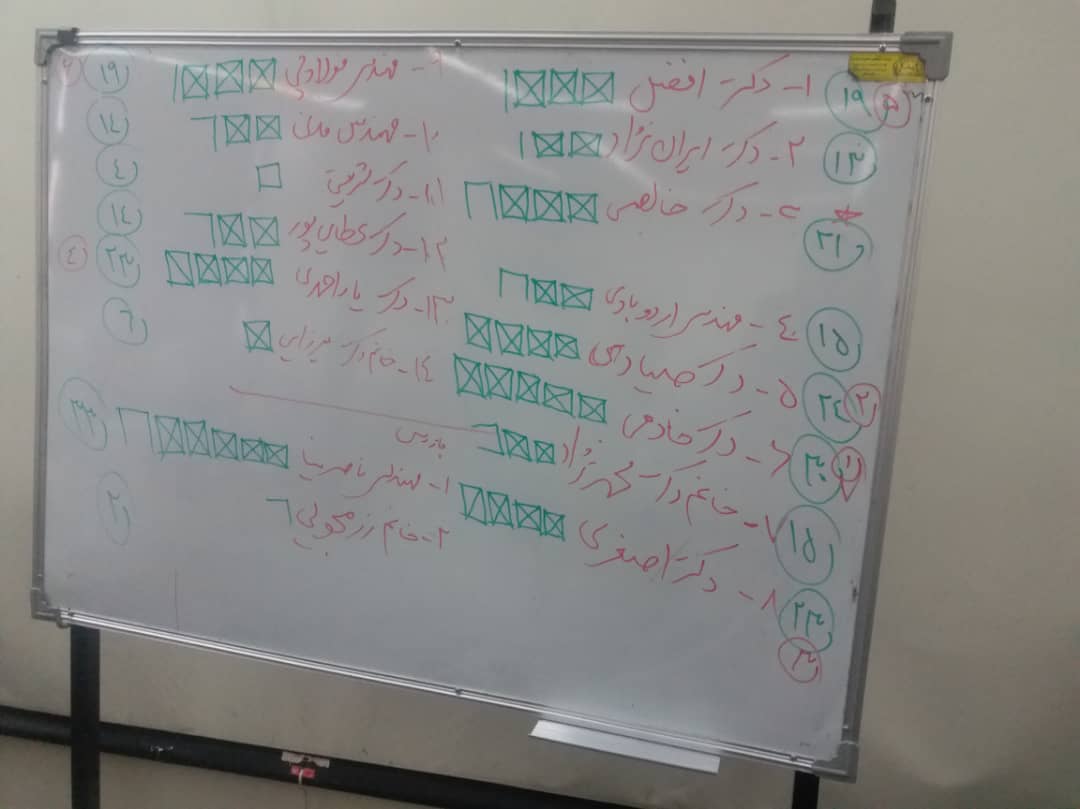 ۱- دکتر افضل ۱۹ ۵
۲- دکتر ایران نژاد ۱۳
۳- دکتر خالصی ۲۱
۴- مهندس اردوبادی ۱۵
۵- دکتر صیادی ۲۴ ۲
۶- دکتر خادمی ۳۰ ۱
۷- خانم دکتر محمدنژاد ۱۵
۸- دکتر اصغری ۲۳ ۳
۹- مهندس مولادی ۱۹
۱۰- مهندس مدنی ۱۴
۱۱- دکتر شریعتی ۴
۱۲- دکتر عطایی پور ۱۴
۱۳- دکتر یاراحمدی ۲۳ ۴
۱۴- خانم دکتر میرزایی ۶
بازرس
۱- مهندس ناصرنیا ۳۳
۲- خانم رزمجویی ۲